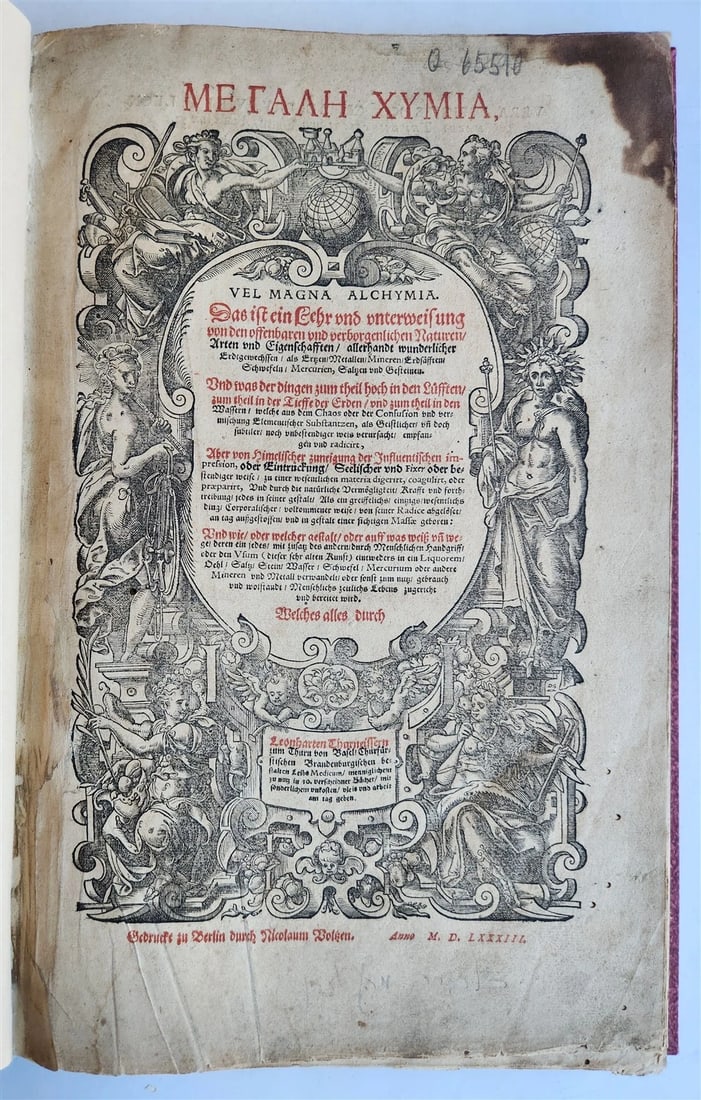 Q 65510
ΜΕΓΑΛΗ ΧΥΜΙΑ,
VEL MAGNA ALCHYMIA.
Das ist ein Lehr vnd vnterweisung
von den offenbaren vnd verborgenlichen Naturen/
Arten vnd Eigenschafften/ allerhandt wunderlicher
Erdtgewechssen/ als Ertzen/ Metallen/ Mineren/ Erdsäfften/
Schwefeln/ Mercurien, Saltzen vnd Gesteinen.
Vnd was der dingen zum theil hoch in den Lüfften/
zum theil in der Tieffe der Erden/ vnd zum theil in den
Wassern/ welche aus dem Chaos oder der Confusion vnd ver-
mischung Elementischer Substantzen, als Geistlicher/ vñ doch
subtiler/ noch vnbestendiger weis verursacht/ empfan-
gen vnd radicirt,
Aber von Himelischer zuneigung der Influentischen im-
pression, oder Eintrückung/ Seelischer vnd fixer oder be-
stendiger weise/ zu einer wesentlichen materia digerirt, coagulirt, oder
præparirt, Vnd durch die natürliche Vermögligkeit/ Krafft vnd forth-
treibung/ jedes in seiner gestalt/ Als ein greiffelichs/ einzigs/ wesentlichs
ding/ Corporalischer/ volkommener weise/ von seiner Radice abgelöset/
an tag außgestossen/ vnd in gestalt einer sichtigen Massæ geboren:
Vnd wie/ oder welcher gestalt/ oder auff was weiß vñ we-
ge/ deren ein jedes/ mit zusatz des andern/ durch Menschlichen Handgriff/
oder den Vsum (dieser sehr alten Kunst) eintweders in ein Liquorem/
Oehl/ Saltz/ Stein/ Wasser/ Schwefel/ Mercurium oder andere
Mineren vnd Metall verwandelt/ oder sonst zum nutz/ gebrauch
vnd wolstandt/ Menschlichs zeitlichs Lebens zugericht
vnd bereitet wird.
Welches alles durch
Leonharten Thurneissern
zum Thurn von Basel/ Churfür-
stischen Brandenburgischen be-
stalten Leibs Medicum/ menniglichem
zu nutz in 10. verscheidner Bücher/ mit
sonderlichem vnkosten/ vleis vnd arbeit
am tag geben.
Gedruckt zu Berlin durch Nicolaum Voltzen. Anno M. D. LXXXIII.